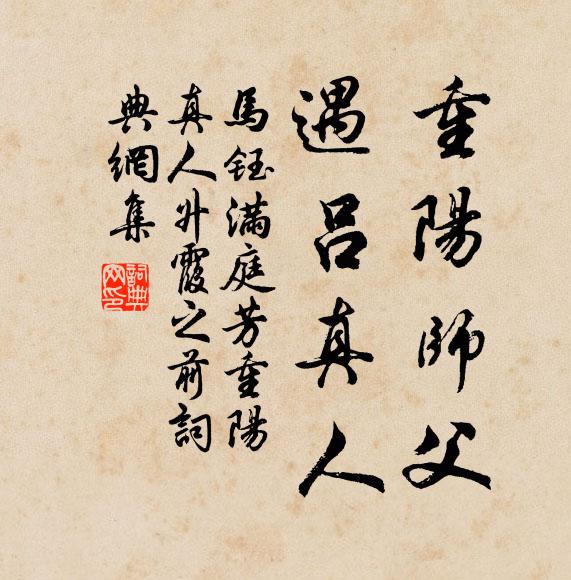 重陽師父
遇呂真人
馬鈺滿庭芳重陽
真人升霞之前詞
典網集
詞典網印